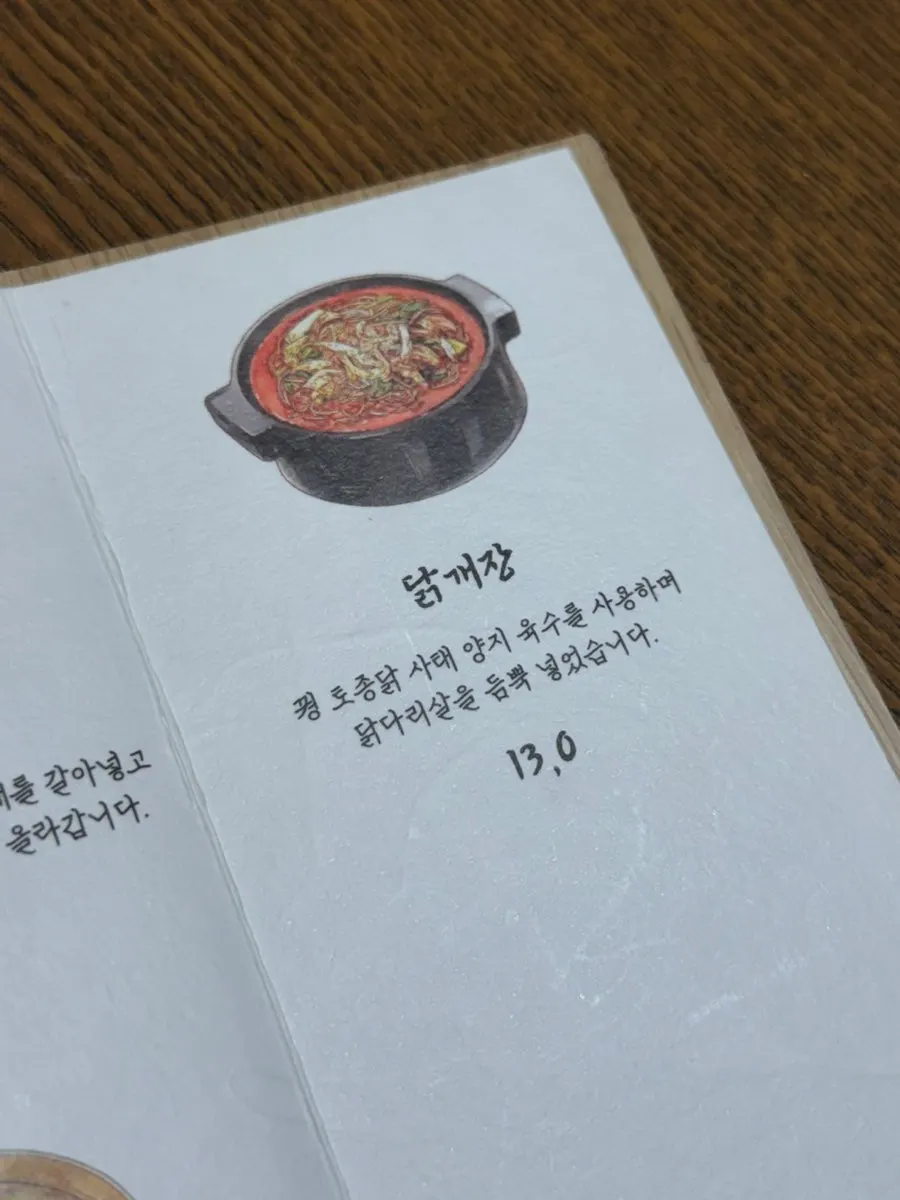 닭개장
꿩 토종닭 사태 양지 육수를 사용하며
닭다리살을 듬뿍 넣었습니다.
13,0
갈아넣고
올라갑니다.